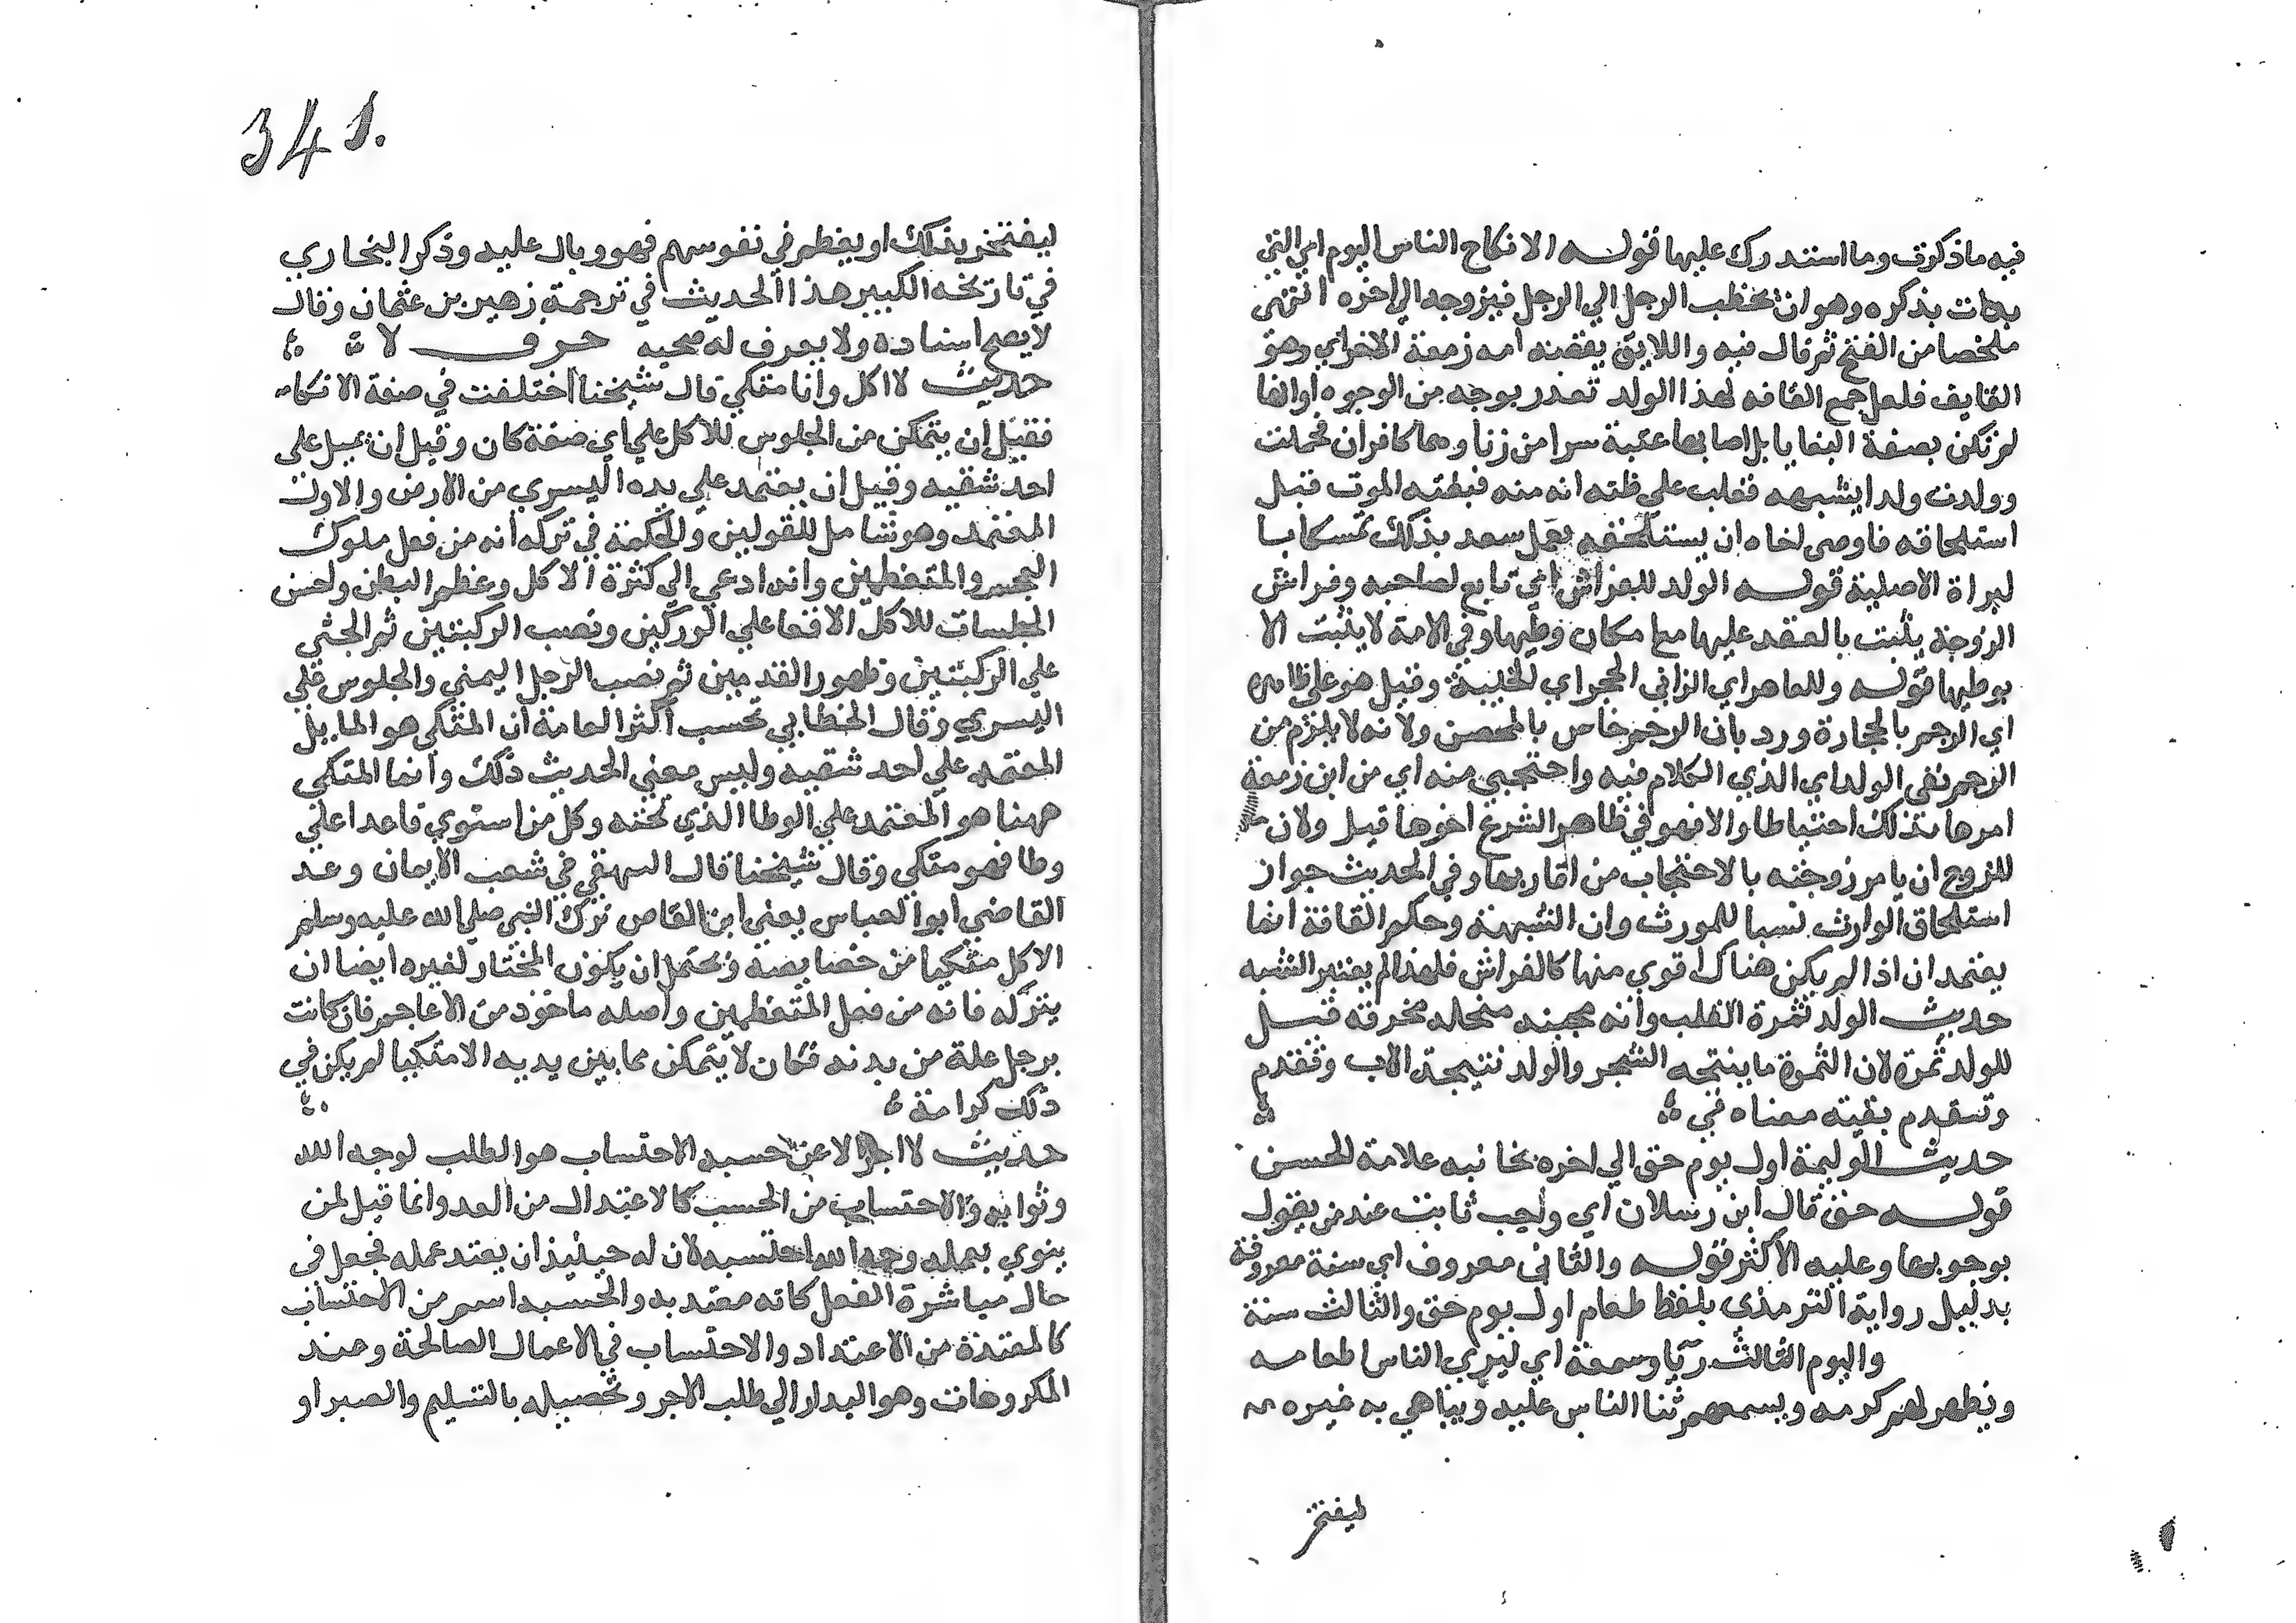 فيه ماذكرت وما استدرك عليها قوله الانكاح الناس اليوم اي التي
بدات بذكره وهو ان يخطب الرجل الي الرجل فيزوجه الي اخره انتهى
ملخصا من الفتح ثم قال فيه واللايق بقصة امه زمعة الاخراي وهو
القايف فلعل جمع القافه لهذا الولد تعذر بوجه من الوجوه او انها
لم تكن بصفة البغايا بل اصابها عتبة سرا من زنا وهما كافران فحملت
وولدت ولدا يشبهه فغلب علي ظنه انه منه فبغته الموت قبل
استلحاقه فاوصى لخاه ان يستلحقه بعمل سعد بذلك تمسكا با
لبراة الاصلية قوله الولد للفراش اي تابع لصاحبه وفراش
الزوجة يثبت بالعقد عليها مع امكان وطيها وفي الامة لا يثبت الا
بوطيها قوله وللعاهر اي الزاني الحجر اي الخيبة وقيل هو علي ظاهره
اي الرجم بالحجارة ورد بان الرجم خاص بالمحصن ولانه لا يلزم من
الرجم نفي الولد اي الذي الكلام فيه واحتجبي منه اي من ابن زمعة
امرها بذلك احتياطا والا فهو في ظاهر الشرع اخوها قيل ولان
للزوج ان يامر زوجته بالاحتجاب من اقاربها وفي الحديث جواز
استلحاق الوارث نسبا للمورث وان الشبهة وحكم القافة انما
يعتمد ان اذا لم يكن هناك اقوي منها كالفراش فلهذا لم يعتبر الشبه
حديث الولد ثمرة القلب وانه مجبنه مبخله محزنه قيل
للولد ثمرة لان الثمرة ما ينتجه الشجر والولد نتيجة الاب وتقدم
وتقدم بقية معناه في
حديث الوليمة اول يوم حق الي اخره بجانبه علامة الحسن
قوله حق قال ابن رسلان اي واجب ثابت عند من يقول
بوجوبها وعليه الاكثر قوله والثاني معروف اي سنة معروفة
بدليل رواية الترمذي بلفظ طعام اول يوم حق والثالث سنة
واليوم الثالث ريا وسمعة اي ليري الناس اطعامه
ويظهر لهم كرمه ويسمعهم ثنا الناس عليه ويباهي به غيره
ليفتخر
341.
ليفتخر بذلك او يعظم في نفوسهم فهو وبال عليه وذكر البخاري
في تاريخه الكبير هذا الحديث في ترجمة زهير بن عثمان وقال
لا يصح اسناده ولا يعرف له صحبه حرف لا
حديث لا اكل وانا متكي قال شيخنا اختلفت في صفة الاتكاء
فقيل ان يتمكن من الجلوس للاكل علي اي صفة كان وقيل ان يميل على
احد شقيه وقيل ان يعتمد علي يده اليسري من الارض والاول
المعتمد وهو شامل للقولين والحكمة في تركه انه من فعل ملوك
العجم والمتعظمين وانه ادعي الي كثرة الاكل وعظم البطن واحسن
الجلسات للاكل الاقعا علي الوركين ونصب الركبتين ثم الجثي
علي الركبتين وظهور القدمين ثم نصب الرجل اليمني والجلوس علي
اليسري وقال الخطابي تحسب اكثر العامة ان المتكي هو المايل
المعتمد علي احد شقيه وليس معني الحديث ذلك وانما المتكي
ههنا هو المعتمد علي الوطا الذي تحته وكل من استوي قاعدا علي
وطا فهو متكي وقال شيخنا قال البيهقي في شعب الايمان وعد
القاضي ابو العباس يعني ابن القاص ترك النبي صلي الله عليه وسلم
الاكل متكيا من خصايصه ويحتمل ان يكون المختار لغيره ايضا ان
يتركه فانه من فعل المتعظمين واصله ماخوذ من الاعاجم فان كانت
برجل علة من بدنه فكان لا يتمكن مما بين يديه الا متكيا لم يكن في
ذلك كرامة
حديث لا اجر الا عن حسبه الاحتساب هو الطلب لوجه الله
وثوابه والاحتساب من الحسب كالاعتداد من العد وانما قيل لمن
ينوي بعمله وجه الله احتسبه لان له حينيذ ان يعتد عمله فجعل في
حال مباشرة الفعل كانه معتد به والحسبه اسم من الاحتساب
كالمعتدة من الاعتداد والاحتساب في الاعمال الصالحة وعند
المكروهات وهو البدار الي طلب الاجر وتحصيله بالتسليم والصبر او